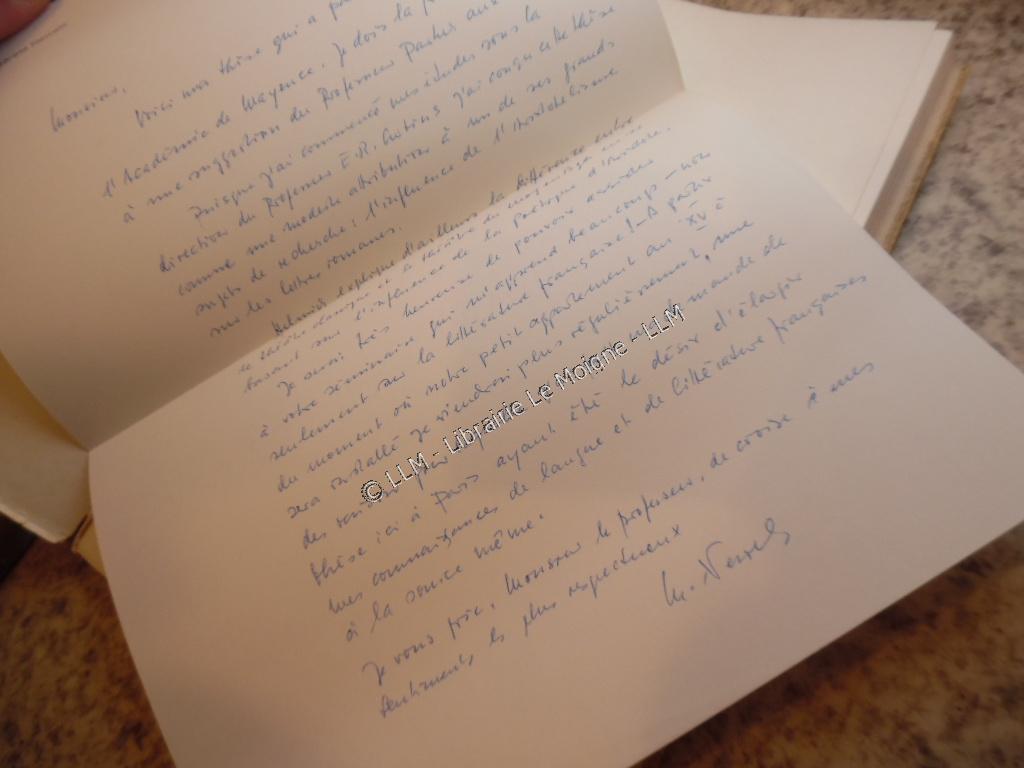 Monsieur,
Voici ma thèse qui a
l'Académie de Mayence. Je dois la
à une suggestion du Professeur aux
Puisque j'ai commencé mes études sous la
direction du Professeur E.R. Curtius j'ai conçu cette thèse
comme une modeste attribution à un de ses grands
sujets de recherche: l'influence de l'Aristotélisme
sur les lettres romanes.
explique d'ailleurs la différence entre
le
basant sur l'influence de la poétique
Je suis très heureuse de pouvoir assister
à votre séminaire qui m'apprend beaucoup – non
seulement sur la littérature française! – A partir
du moment où notre petit appartement au XV è
sera installé je viendrai plus régulièrement,
des
thèse ici à Paris ayant été le désir d'élargir
mes connaissances de langue et de littérature françaises
à la source même.
Je vous prie, Monsieur le professeur, de croire à mes
sentiments les plus respectueux
© LLM - Librairie Le Moigne - LLM